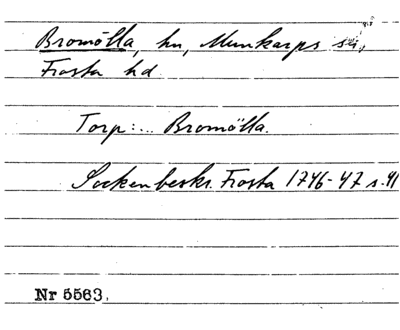 Bromölla, hn, Munkarps sn,
Frosta hd
Torp:... Bromölla.
Sockenbeskr. Frosta 1746-47 s. 41
Nr 5563.